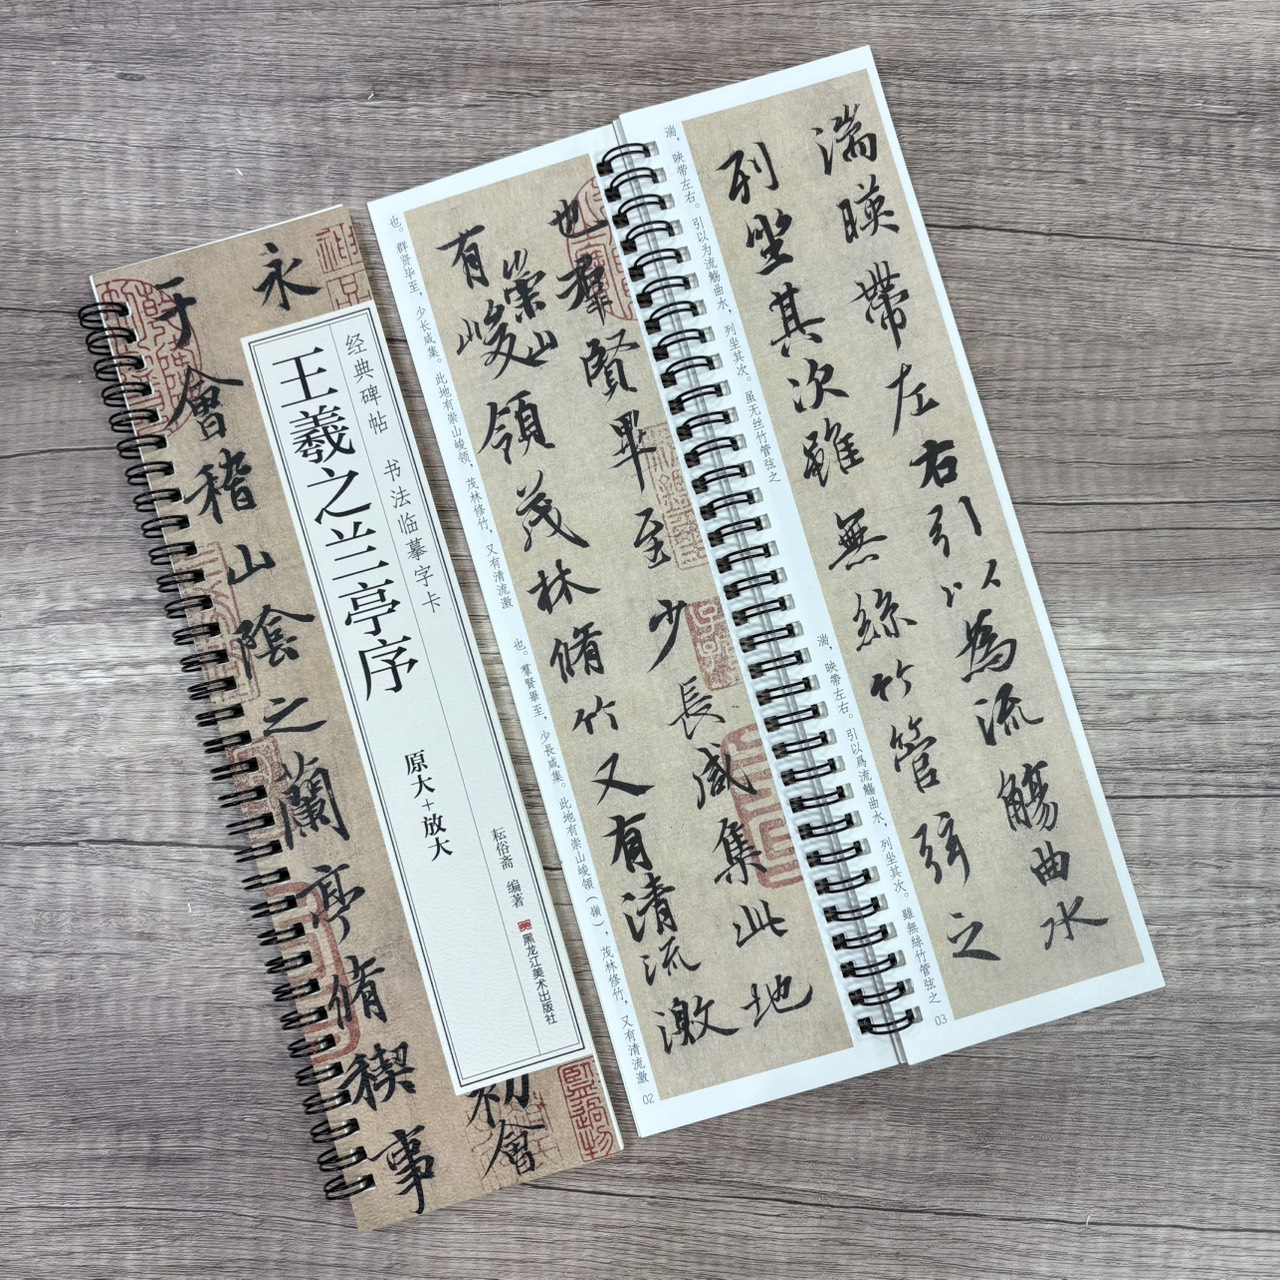 永
于會稽山陰之蘭亭脩禊事
初會
经典碑帖 书法临摹字卡
王羲之兰亭序
原大+放大
耘俗斋 编著
黑龙江美术出版社
也羣賢畢至少長咸集此地
有崇山峻領茂林脩竹又有清流激
也。群贤毕至，少长咸集。此地有崇山峻领，茂林修竹，又有清流激
也。羣賢畢至，少長咸集。此地有崇山峻領（嶺），茂林修竹，又有清流激
02
湍暎帶左右引以為流觴曲水
列坐其次雖無絲竹管弦之
湍，映带左右。引以为流觞曲水，列坐其次。虽无丝竹管弦之
湍，映帶左右。引以爲流觴曲水，列坐其次。雖無絲竹管弦之
03